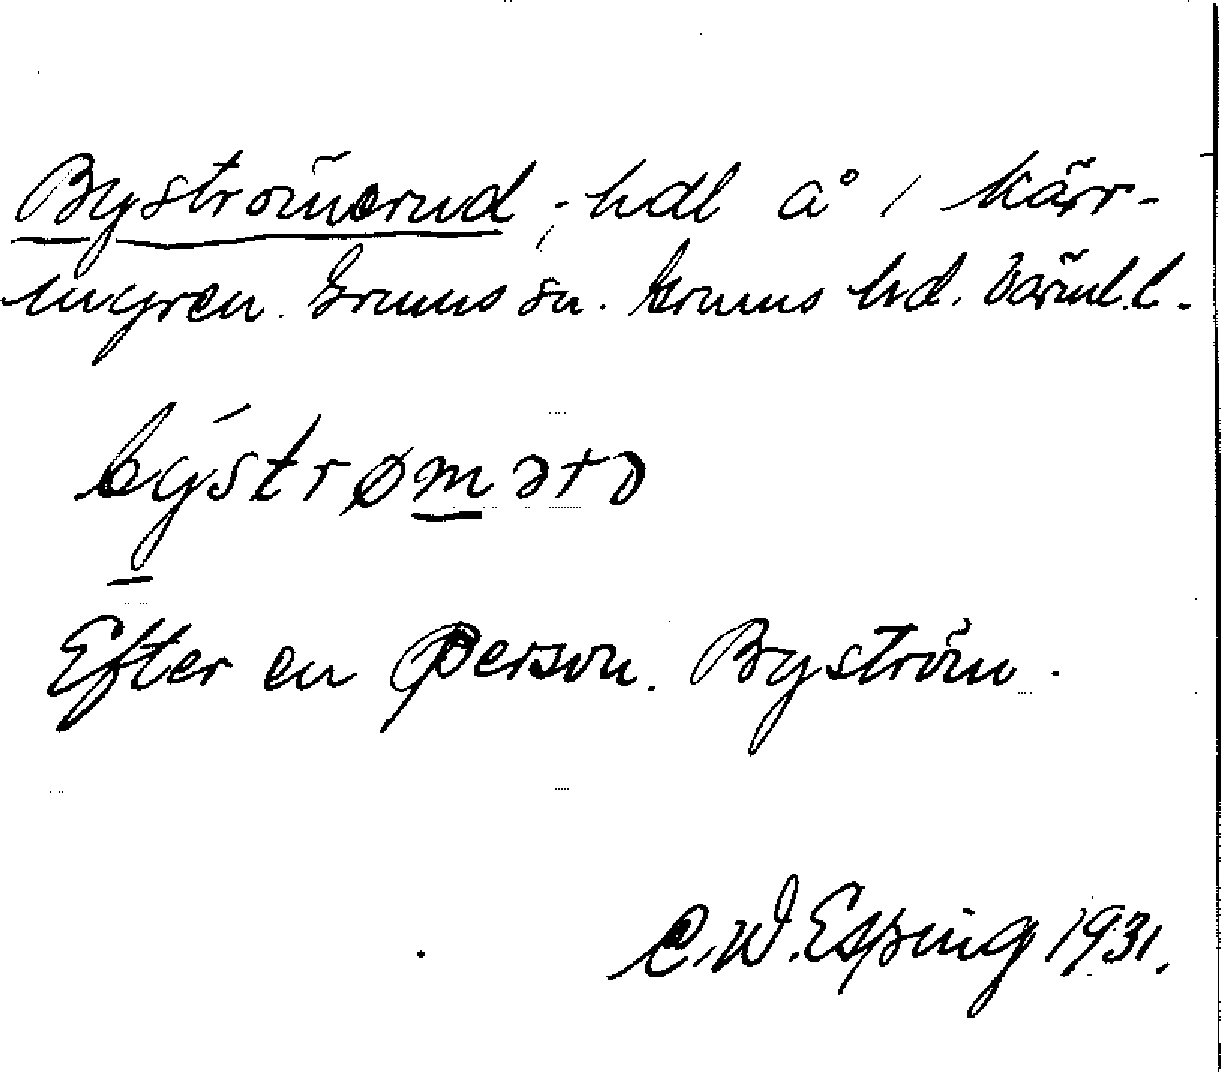 Byströmerud, hdl å 1 Kärr-
ingren. Grums sn. Grums hd. Värml.l.
býstrømərə
Efter en person. Byström.
C.W. Esping 1931.